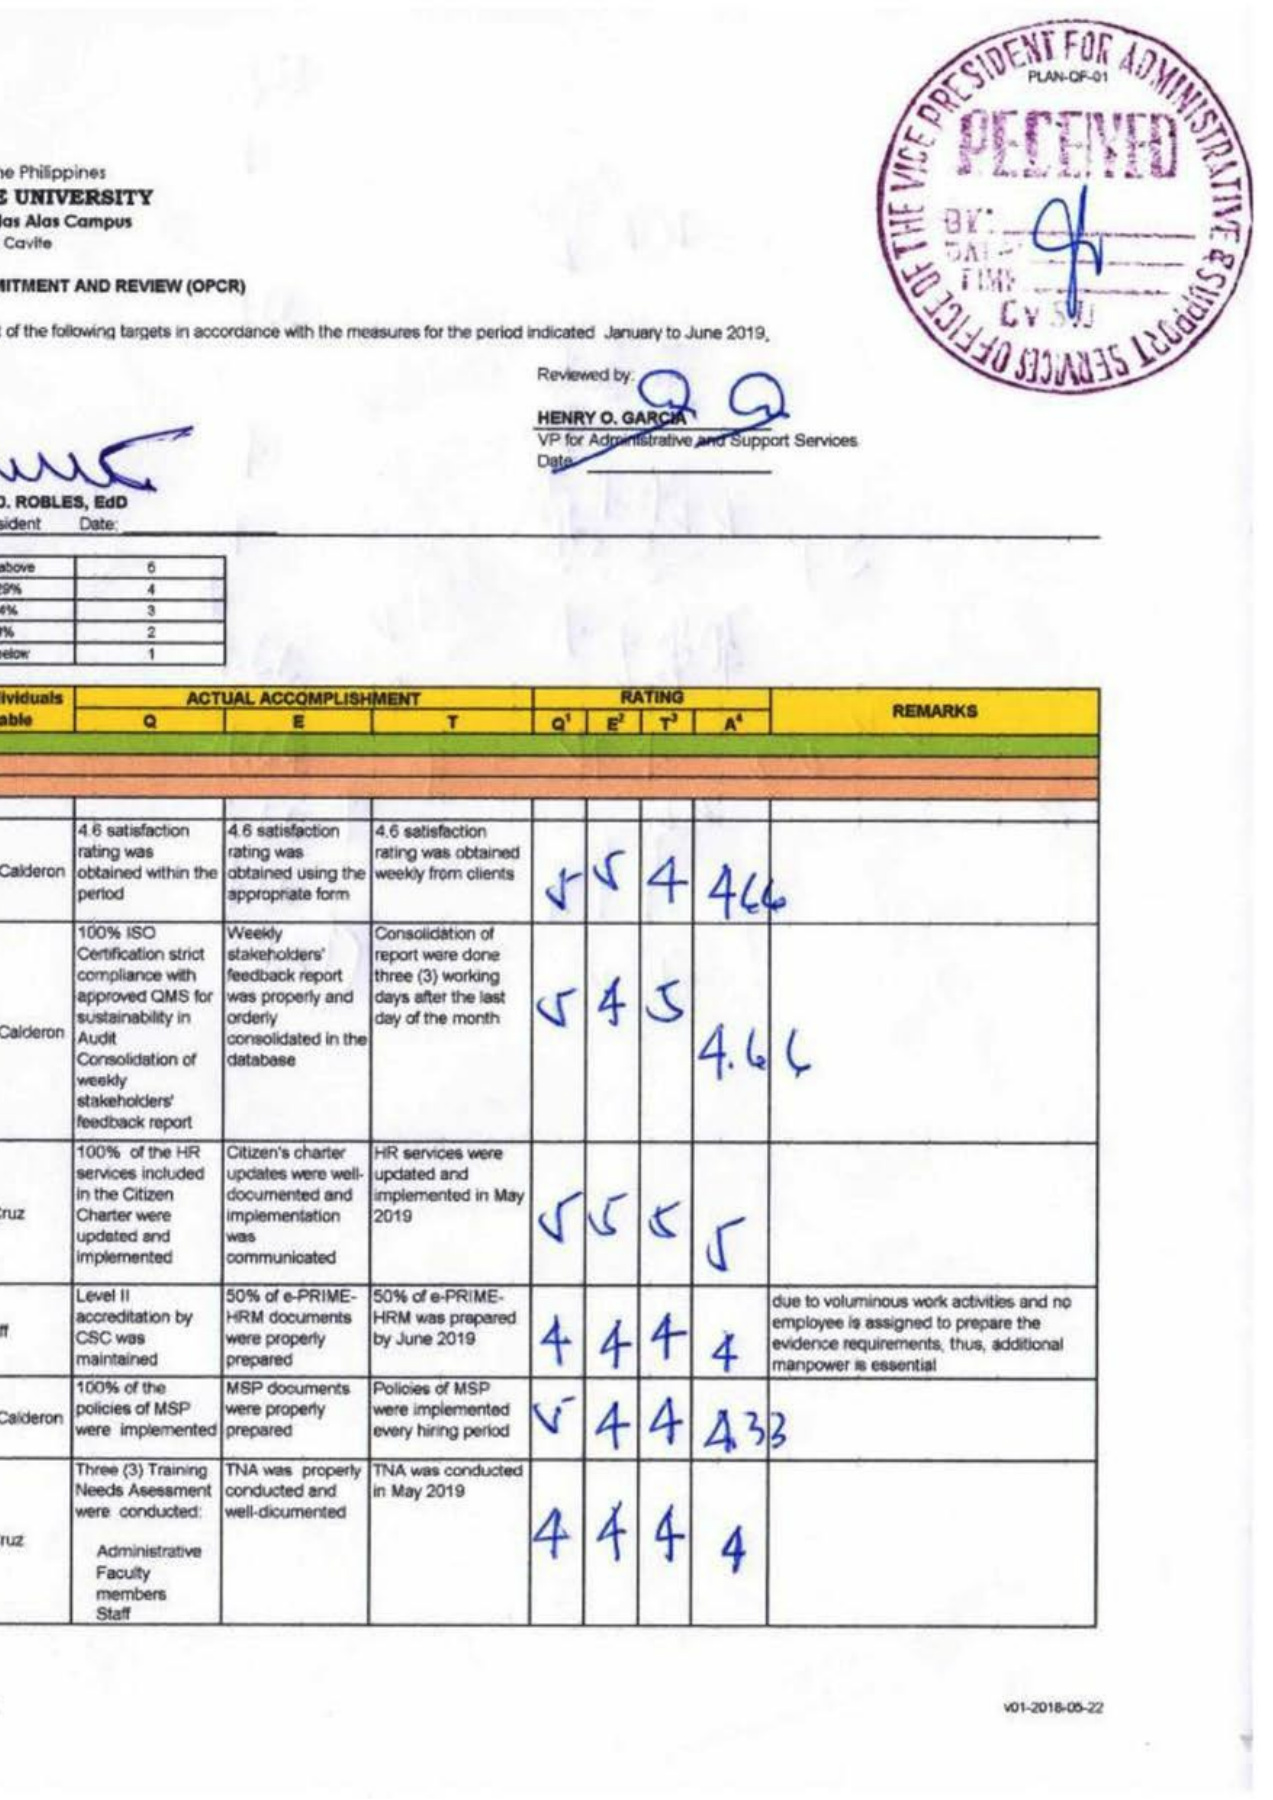 PLAN-QF-01
OFFICE OF THE VICE PRESIDENT FOR ADMINISTRATIVE & SUPPORT SERVICES
RECEIVED
BY:
DATE
TIME
CvSU
he Philippines
E UNIVERSITY
las Alas Campus
Cavite
MITMENT AND REVIEW (OPCR)
t of the following targets in accordance with the measures for the period indicated January to June 2019,
Reviewed by:
HENRY O. GARCIA
VP for Administrative and Support Services
Date
D. ROBLES, EdD
sident Date:
above 5
29% 4
4% 3
% 2
below 1
dividuals ACTUAL ACCOMPLISHMENT RATING REMARKS
able Q E T Q¹ E² T³ A⁴
Calderon
4.6 satisfaction
rating was
obtained within the
period
4.6 satisfaction
rating was
obtained using the
appropriate form
4.6 satisfaction
rating was obtained
weekly from clients
5 5 4 4.66
Calderon
100% ISO
Certification strict
compliance with
approved QMS for
sustainability in
Audit
Consolidation of
weekly
stakeholders'
feedback report
Weekly
stakeholders'
feedback report
was properly and
orderly
consolidated in the
database
Consolidation of
report were done
three (3) working
days after the last
day of the month
5 4 5 4.66
Cruz
100% of the HR
services included
in the Citizen
Charter were
updated and
implemented
Citizen's charter
updates were well-
documented and
implementation
was
communicated
HR services were
updated and
implemented in May
2019
5 5 5 5
ff
Level II
accreditation by
CSC was
maintained
50% of e-PRIME-
HRM documents
were properly
prepared
50% of e-PRIME-
HRM was prepared
by June 2019
4 4 4 4
due to voluminous work activities and no
employee is assigned to prepare the
evidence requirements, thus, additional
manpower is essential
Calderon
100% of the
policies of MSP
were implemented
MSP documents
were properly
prepared
Policies of MSP
were implemented
every hiring period
5 4 4 4.33
ruz
Three (3) Training
Needs Asessment
were conducted:
Administrative
Faculty
members
Staff
TNA was properly
conducted and
well-dicumented
TNA was conducted
in May 2019
4 4 4 4
v01-2018-05-22